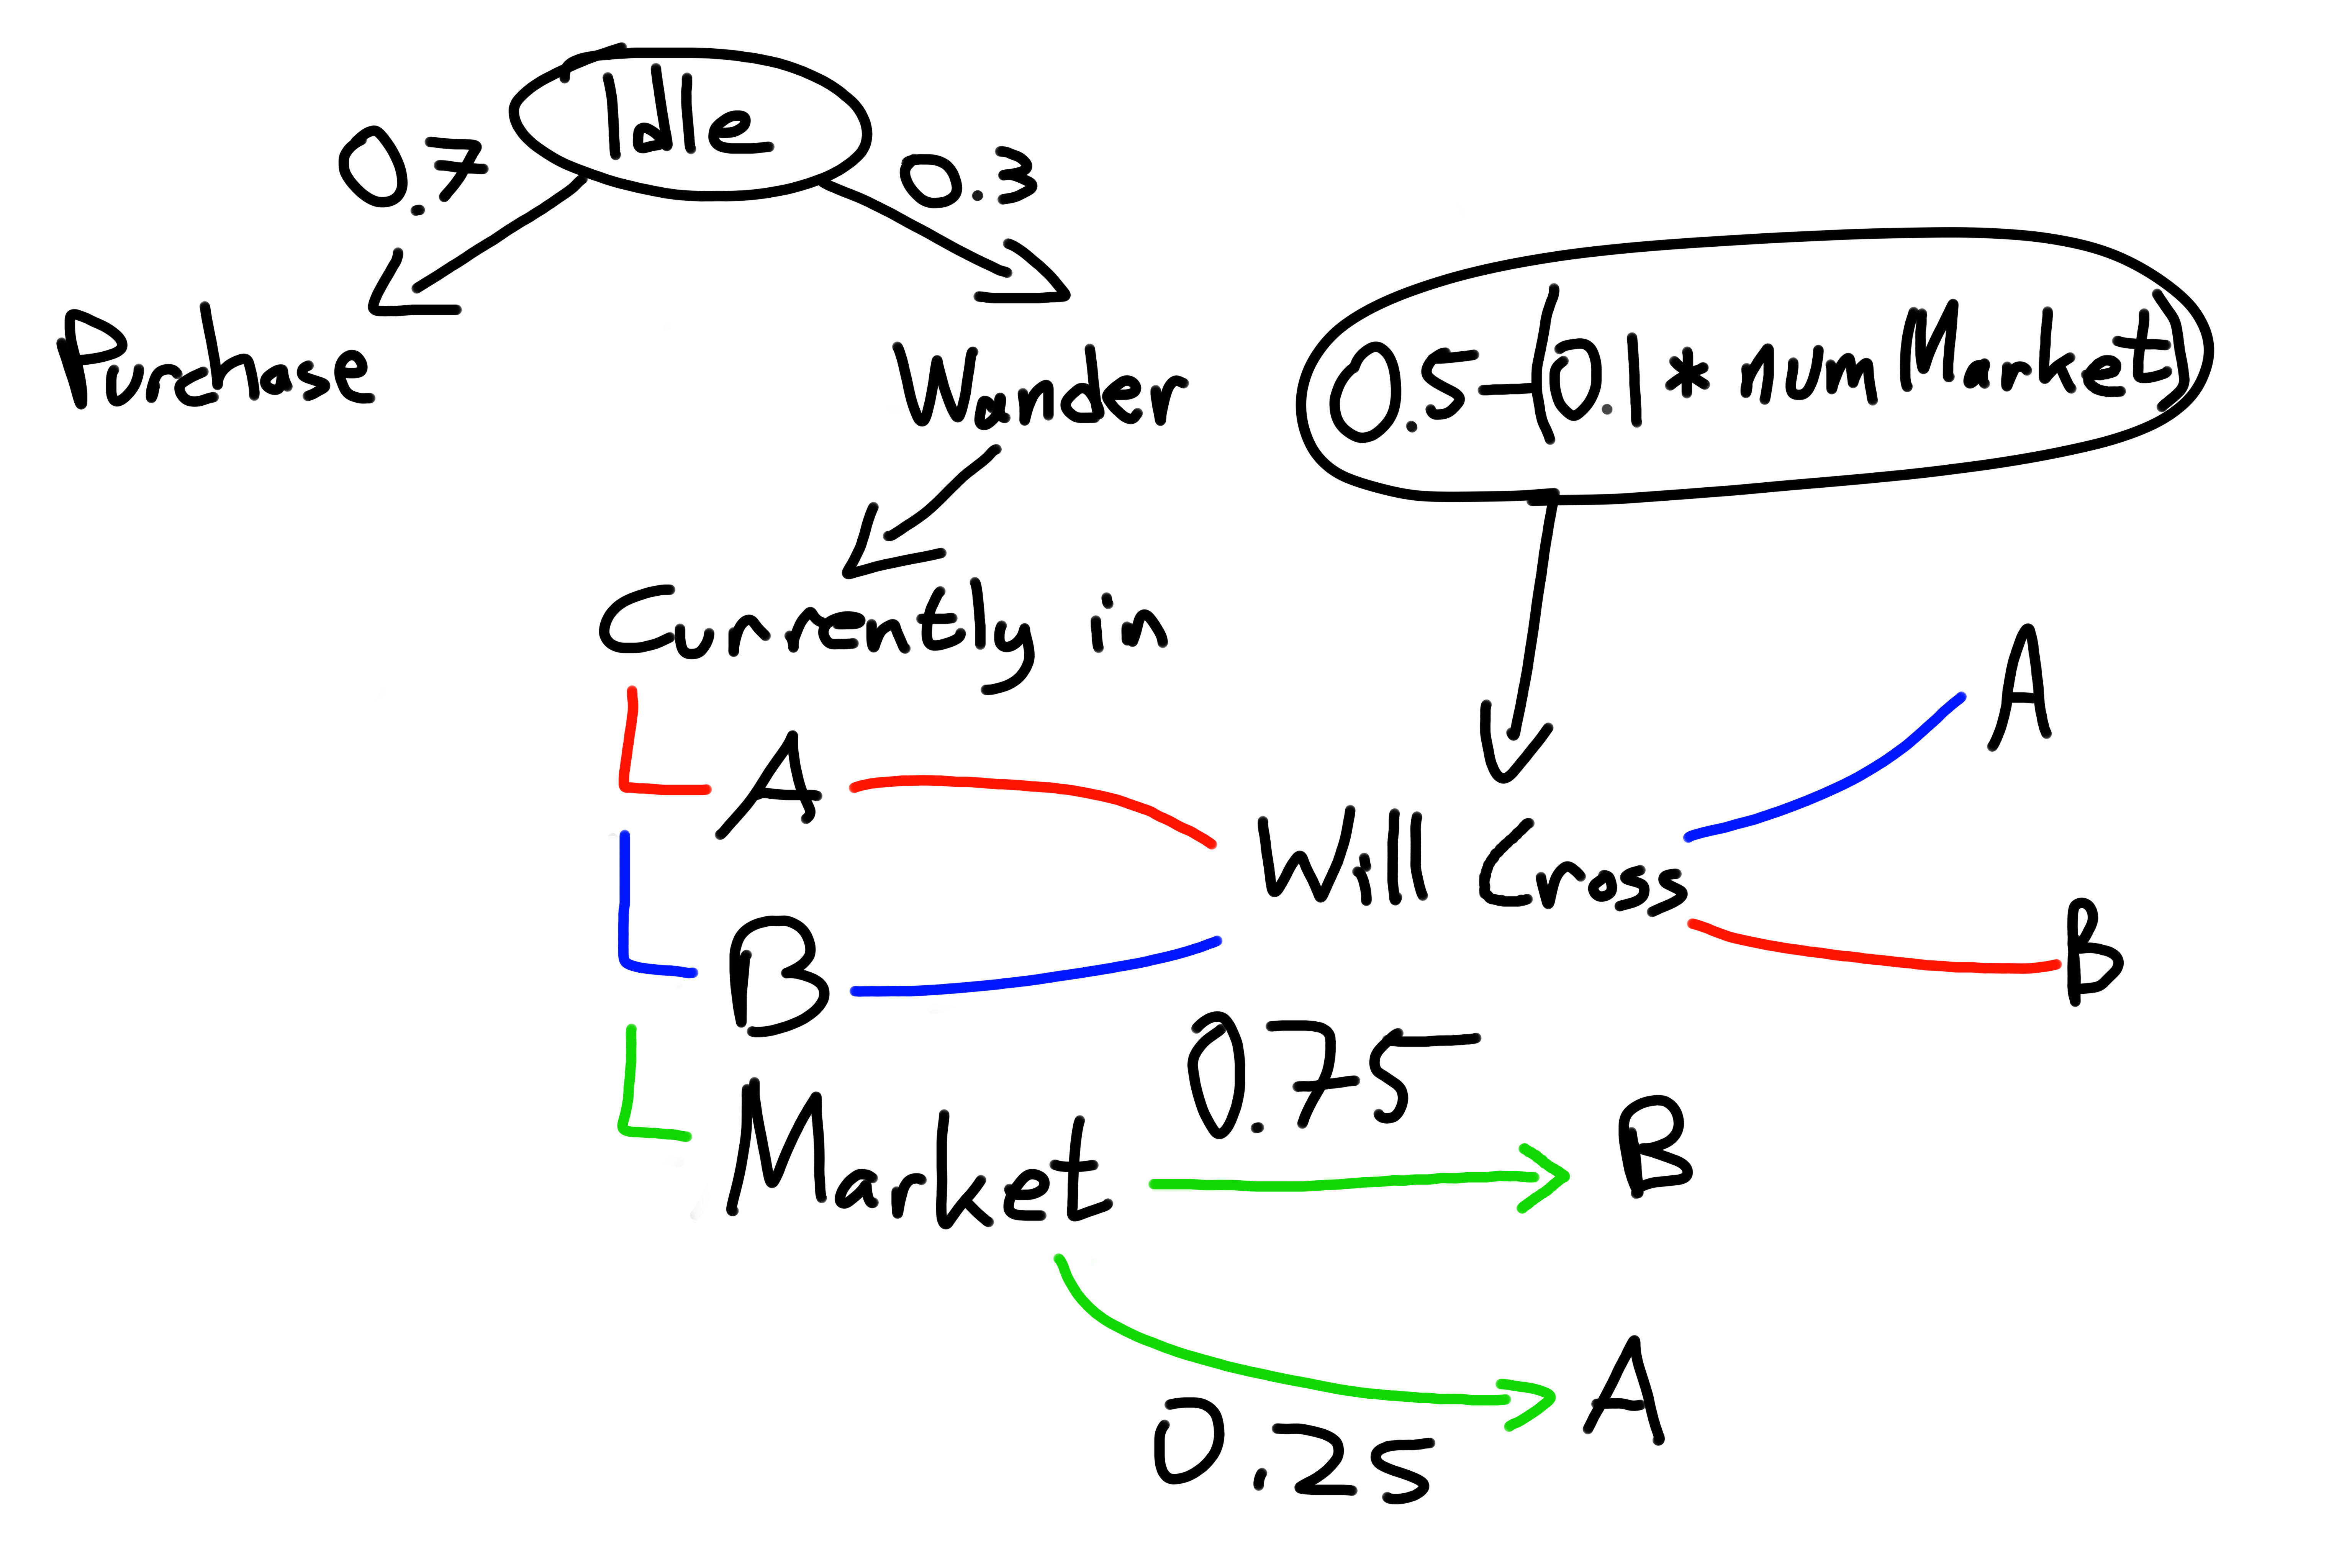 Idle
0.7
0.3
Purchase
Wander
0.5-(0.1*numMarket)
Currently in
A
A
Will Cross
B
B
0.75
Market
B
A
0.25